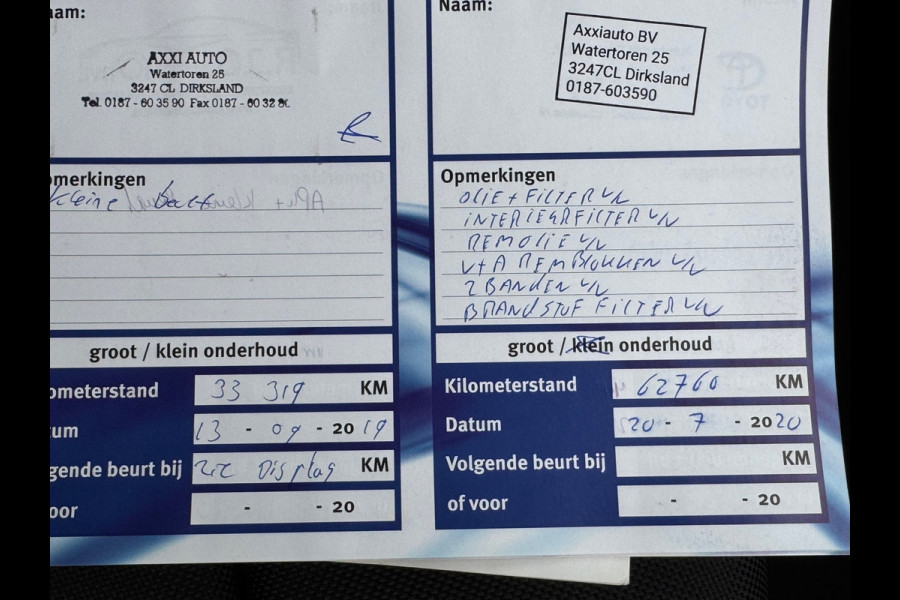 aam:
AXXI AUTO
Watertoren 25
3247 CL DIRKSLAND
Tel. 0187 - 60 35 90 Fax 0187 - 60 32 8
omerkingen
kleine
groot / klein onderhoud
ometerstand 33 319 KM
um 13 - 09 - 2019
gende beurt bij zie Display KM
oor - - 20
Naam:
Axxiauto BV
Watertoren 25
3247CL Dirksland
0187-603590
Opmerkingen
OLIE + FILTER VN
INTERIEURFILTER VN
REMOLIE VN
V+A REMBLOKKEN VN
2 BANDEN VN
BRANDSTOF FILTER VN
groot / klein onderhoud
Kilometerstand 62760 KM
Datum 20 - 7 - 2020
Volgende beurt bij KM
of voor - - 20